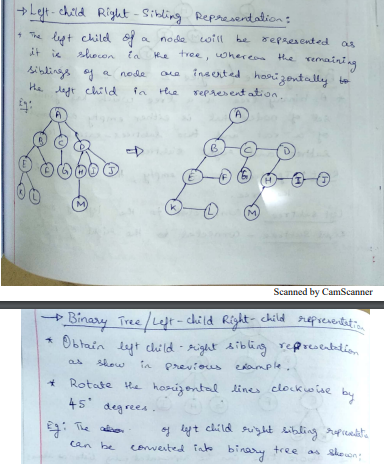 → Left-child Right-Sibling Representation:
* The left child of a node will be represented as
it is shown in the tree, whereas the remaining
siblings of a node are inserted horizontally to
the left child in the representation.
Eg:
A A
B C D ⇒ B C D
E F G H I J E F G H I J
K L M K L M
Scanned by CamScanner
→ Binary Tree/Left-child Right-child representation
* Obtain left child-right sibling representation
as show in previous example.
* Rotate the horizontal lines clockwise by
45° degrees.
Eg: The of left child right sibling representatio
can be converted into binary tree as shown: